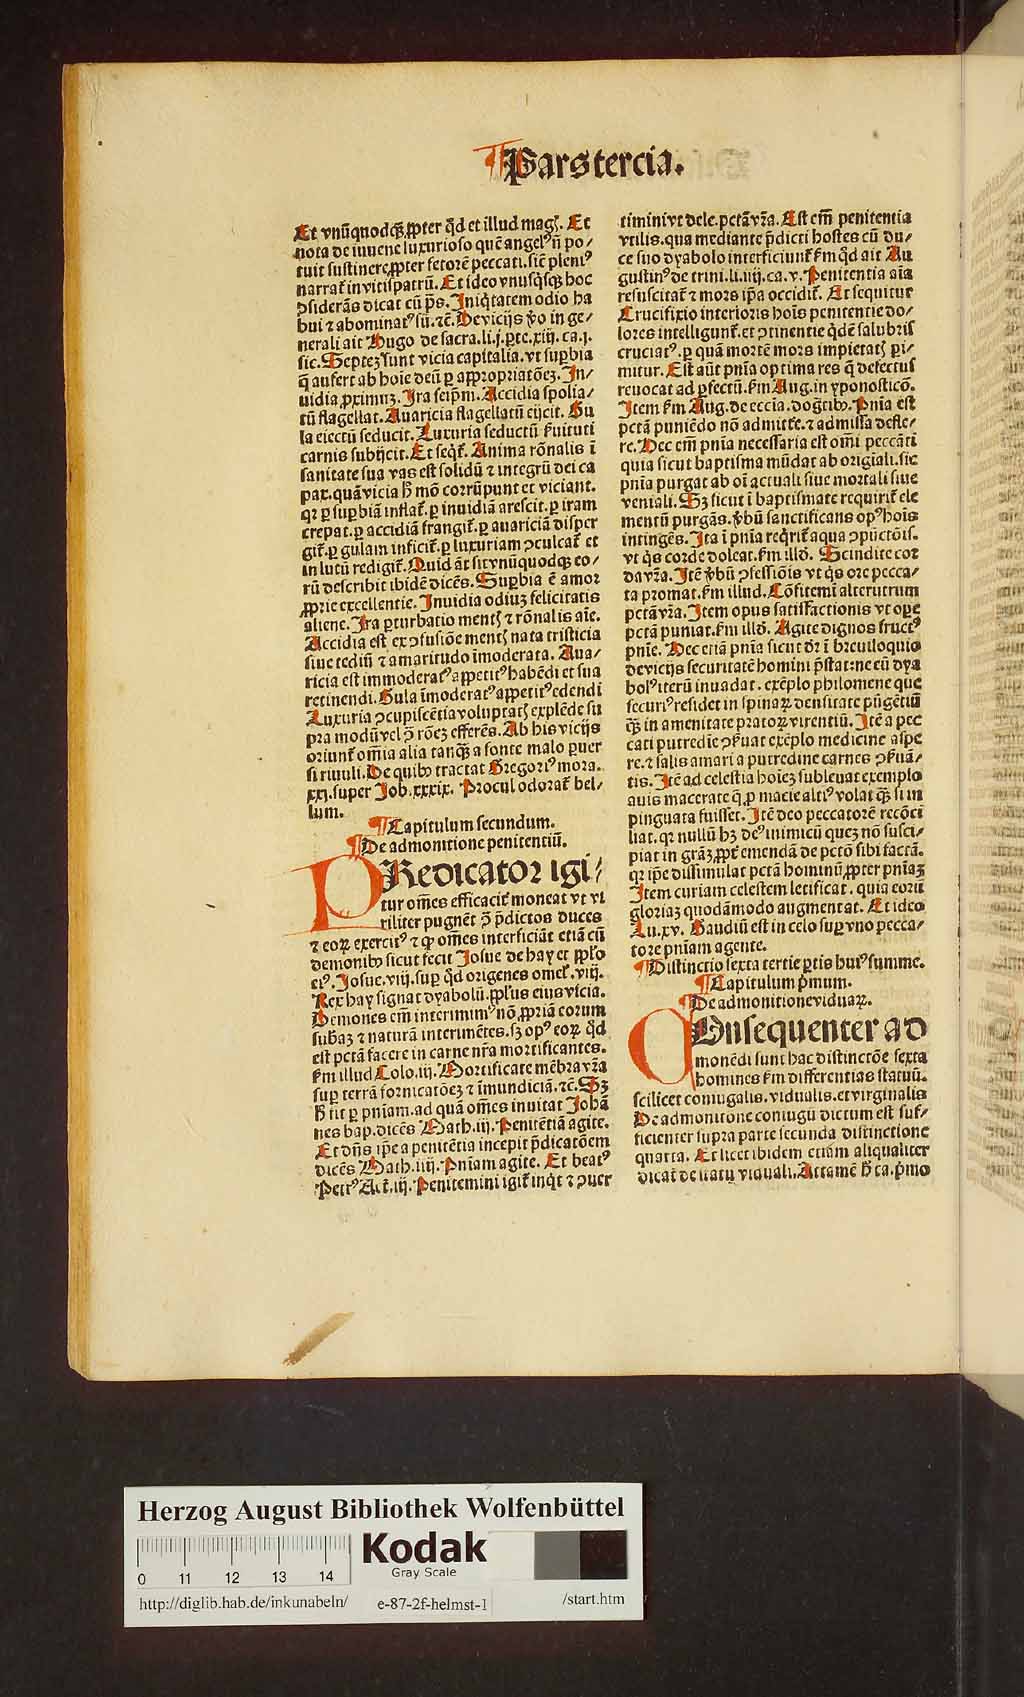 ¶ Pars tercia.
Et vnūquodqꝫ ꝓpter qd̄ et illud magꝭ. Et
nota de iuuene luxurioso quē angelꝰ nō po⸗
tuit sustinere ꝓpter fetorē peccati. sic̄ pleniꝰ
narrat̄ in vitispatrū. Et ideo vnusqꝫsqꝫ hoc
ꝯsiderās dicat cū p̄s. Iniqͥtatem odio ha
bui ⁊ abominatꝰ sū. ⁊c̄. De vicijs v̓o in ge⸗
nerali ait Hugo de sacra. li. j. ꝑte. xiij. ca. j.
sic. Septeꝫ sunt vicia capitalia. vt suꝑbia
q̄ aufert ab hoīe deū ꝑ appropriatōeꝫ. In⸗
uidia ꝓximuꝫ. Ira seip̄m. Accidia spolia⸗
tū flagellat. Auaricia flagellatū eijcit. Gu
la eiectū seducit. Luxuria seductū s̓uituti
carnis subijcit. Et seqt̄. Anima rōnalis ī
sanitate sua vas est solidū ⁊ integrū dei ca
pax. quā vicia h̄ mō corrūpunt et viciant.
qꝛ ꝑ suꝑbiā inflat̄. ꝑ inuidiā arescit. ꝑ iram
crepat. ꝑ accidiā frangit̄. ꝑ auariciā disper
git̄. ꝑ gulam inficit̄. ꝑ luxuriam ꝯculcat̄ et
in lutū redigit̄. Quid āt sit vnūquodqꝫ eo⸗
rū describit ibidē dicēs. Suꝑbia ē amor
ꝓprie excellentie. Inuidia odiuꝫ felicitatis
aliene. Ira ꝑturbatio mentꝭ ⁊ rōnalis aīe.
Accidia est ex ꝯfusiōe mentꝭ nata tristicia
siue tediū ⁊ amaritudo īmoderata. Aua⸗
ricia est immoderatꝰ appetitꝰ habēdi et sua
retinendi. Gula īmoderatꝰ appetitꝰ edendi
Luxuria ꝯcupiscētia voluptatꝭ explēde su
pra modū vel ꝯ̄ rōeꝫ efferēs. Ab his vicijs
oriunt̄ om̄ia alia tanqꝫ a fonte malo ꝑuer
si riuuli. De quibꝰ tractat Gregoriꝰ mora.
xxj. super Job. xxxix. Procul odorat̄ bel⸗
lum.
¶ Capitulum secundum.
¶ De admonitione penitentiū.
PRedicator igi⸗
tur om̄es efficacit̓ moneat vt vi
riliter pugnēt ꝯ̄ p̄dictos duces
⁊ eoꝝ exercitꝰ ⁊ ꝙ om̄es interficiāt etiā cū
demonibꝰ sicut fecit Josue de hay et pp̄lo
eiꝰ. Josue. viij. suꝑ qd̄ origenes omel̓. viij.
Rex hay signat dyabolū. pp̄lus eius vicia.
Demones em̄ interimimꝰ nō ꝓpriā eorum
subaꝫ ⁊ naturā interimētes. sꝫ opꝰ eoꝝ qd̄
est pctā facere in carne nr̄a mortificantes.
s̓m illud Colo. iij. Mortificate mēbra vr̄a
suꝑ terrā fornicatōeꝫ ⁊ īmundiciā. ⁊c̄. Sꝫ
h̄ fit ꝑ pn̄iam. ad quā om̄es inuitat Johā
nes bap. dicēs Math. iij. Penitētiā agite.
Et dn̄s ip̄e a penitētia incepit p̄dicatōem
dicēs Math. iiij. Pn̄iam agite. Et beatꝰ
Petrꝰ Act̄. iij. Penitemini igit̄ inqͥt ⁊ ꝯuer
timini vt dele. pctā vr̄a. Est em̄ penitentia
vtilis. qua mediante p̄dicti hostes cū du⸗
ce suo dyabolo interficiunt̄ s̓m qd̄ ait Au
gustinꝰ de trini. li. iiij. ca. v. Penitentia aīa
resuscitat̄ ⁊ mors ip̄a occidit̄. Et sequitur
Crucifixio interioris hoīs penitentie do⸗
lores intelligunt̄. et ꝯtinentie qͥdē salubris
cruciatꝰ. ꝑ quā mortē mors impietatꝭ ꝑi⸗
mitur. Est aūt pn̄ia optima res q̄ defectus
reuocat ad ꝑfectū. s̓m Aug. in yponosticō.
Item s̓m Aug. de eccīa. dog̓tibꝰ. Pn̄ia est
pctā puniēdo nō admitt̓e. ⁊ admissa defle⸗
re. Hec em̄ pn̄ia necessaria est om̄i peccāti
quia sicut baptisma mūdat ab origīali. sic
pn̄ia purgat ab oī actuali siue mortali siue
veniali. Sꝫ sicut ī baptismate requirit̄ ele
mentū purgās. v̓bū sanctificans opꝰ hoīs
intingēs. Ita ī pn̄ia reqͥrit̄ aqua ꝯpūctōis.
vt qͥs corde doleat. s̓m illō. Scindite cor
da vr̄a. Itē v̓bū ꝯfessiōis vt qͥs ore pecca⸗
ta promat. s̓m illud. Cōfitemī alterutrum
pctā vr̄a. Item opus satisfactionis vt oꝑe
pctā puniat. s̓m illō. Agite dignos fructꝰ
pn̄ie. Hec etiā pn̄ia sicut dr̄ ī breuiloquio
de vicijs securitatē homini p̄stat: ne eū dya
bolꝰ iterū inuadat. exēplo philomene que
securiꝰ residet in spinaꝝ densitate pūgētiū
qꝫ in amenitate pratoꝝ virentiū. Itē a pec
cati putredīe ꝯs̓uat exēplo medicine aspe
re. ⁊ salis amari a putredine carnes ꝯs̓uā⸗
tis. Itē ad celestia hoīeꝫ subleuat exemplo
auis macerate q̄ p̄ macie altiꝰ volat qꝫ si in
pinguata fuisset. Itē deo peccatorē recōci
liat. qꝛ nullū hꝫ deꝰ inimicū queꝫ nō susci⸗
piat in grāꝫ ꝓpt̓ emendā de pctō sibi factā.
qꝛ ip̄e dissimulat pctā hominū ꝓpter pn̄iaꝫ
Item curiam celestem letificat. quia eorū
gloriaꝫ quodāmodo augmentat. Et ideo
Lu. xv. Gaudiū est in celo suꝑ vno pecca⸗
tore pn̄iam agente.
¶ Distinctio sexta tertie ꝑtis huiꝰ summe.
¶ Capitulum p̄mum.
¶ De admonitione viduaꝝ.
COnsequenter ad
monēdi sunt hac distinctōe sexta
homines s̓m differentias statuū.
scilicet coniugalis. vidualis. et virginalis
De admonitione coniugū dictum est suf⸗
ficienter supra parte secunda distinctione
quarta. Et licet ibidem etiam aliqualiter
dicat̄ de statu viduali. Attamē h̄ ca. p̄mo
Herzog August Bibliothek Wolfenbüttel
0 11 12 13 14
Kodak
Gray Scale
http://diglib.hab.de/inkunabeln/ e-87-2f-helmst-1 /start.htm